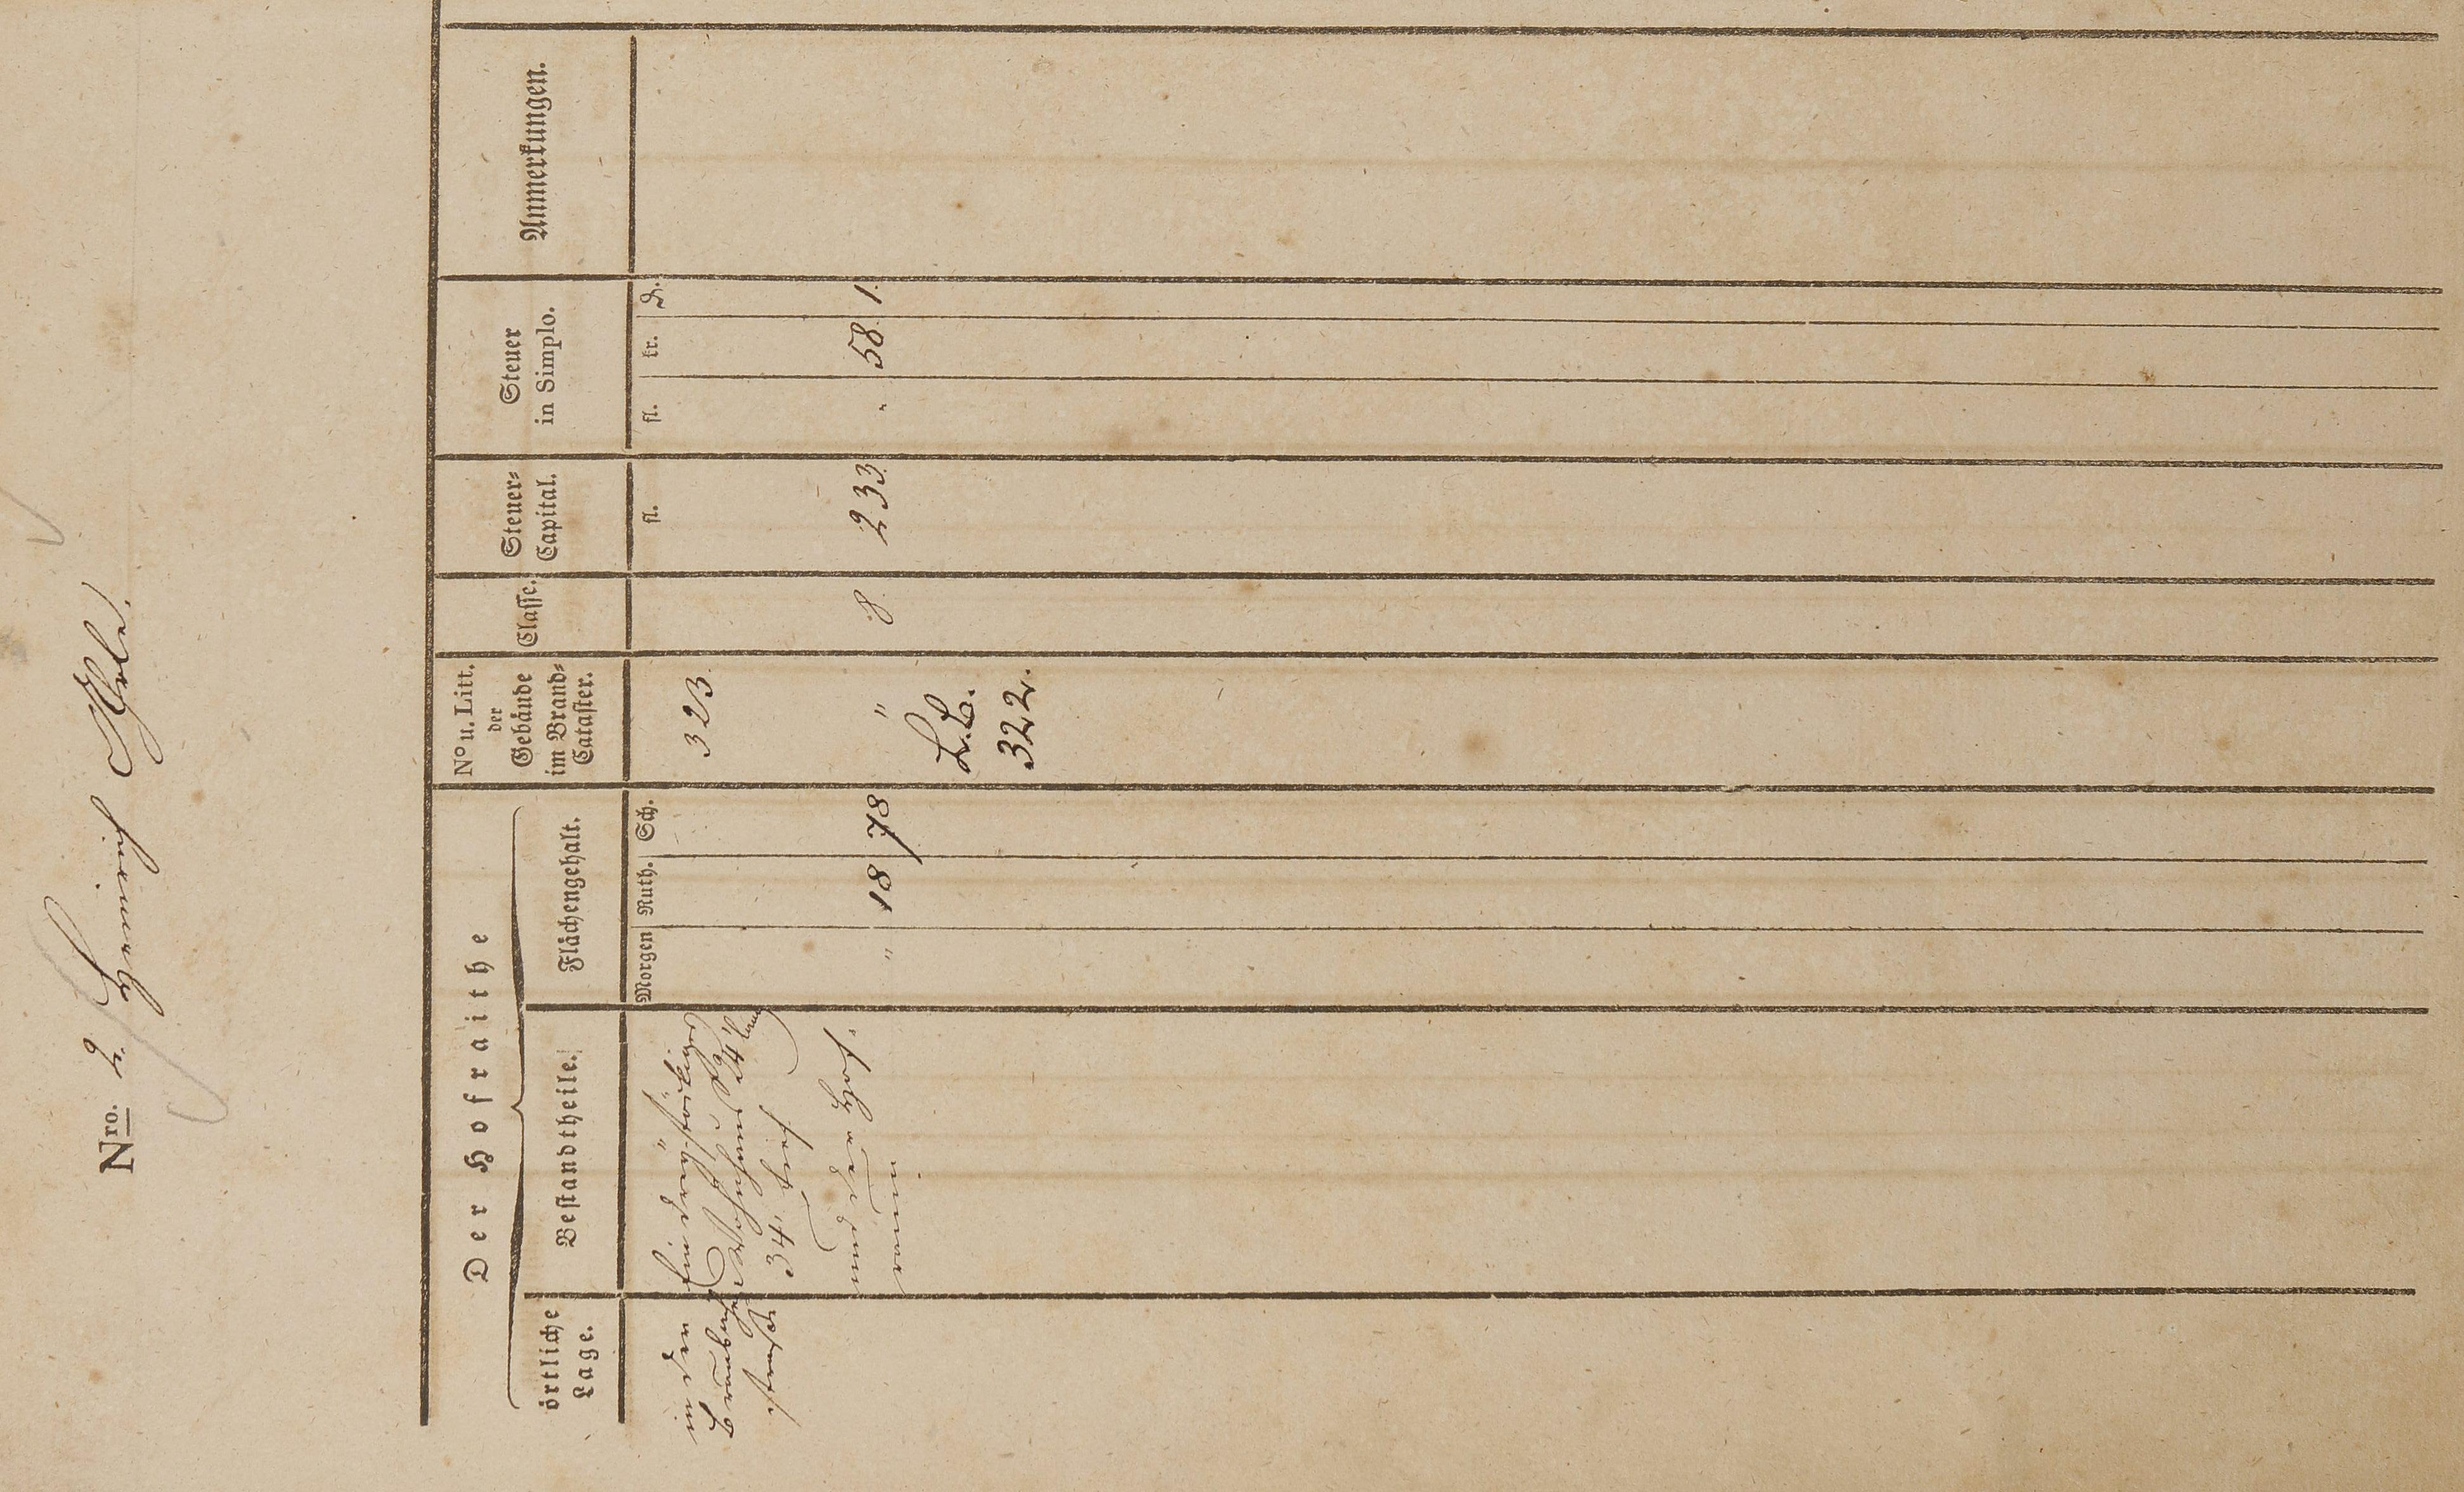 Nro. 2. Heinrich
Der Hofraithe
örtliche
Lage.
Bestandtheile.
Flächengehalt.
Morgen Ruth. Sch.
No u. Litt.
der
Gebäude
im Brand-
Cataster.
Classe.
Steuer-
Capital.
fl.
Steuer
in Simplo.
fl. kr. d.
Anmerkungen.
in der
Ein dreystöckiges 323.
Wohnhaus 24' lang
34' tief
und der Hof. " 18 78 " 8. 233. " 58. 1.
L.B.
322.